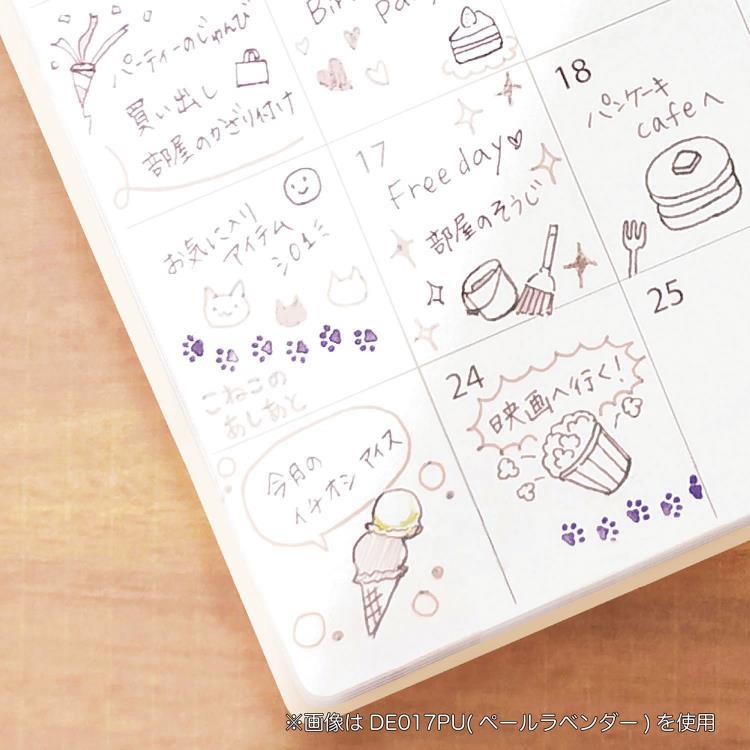 パーティーのじゅんび
買い出し
部屋のかざり付け
18
パンケーキ
cafeへ
17
Free day♡
部屋のそうじ
お気に入り
アイテム
25
24
映画へ行く!
こねこの
あしあと
今月の
イチオシアイス
※画像は DE017PU( ペールラベンダー ) を使用